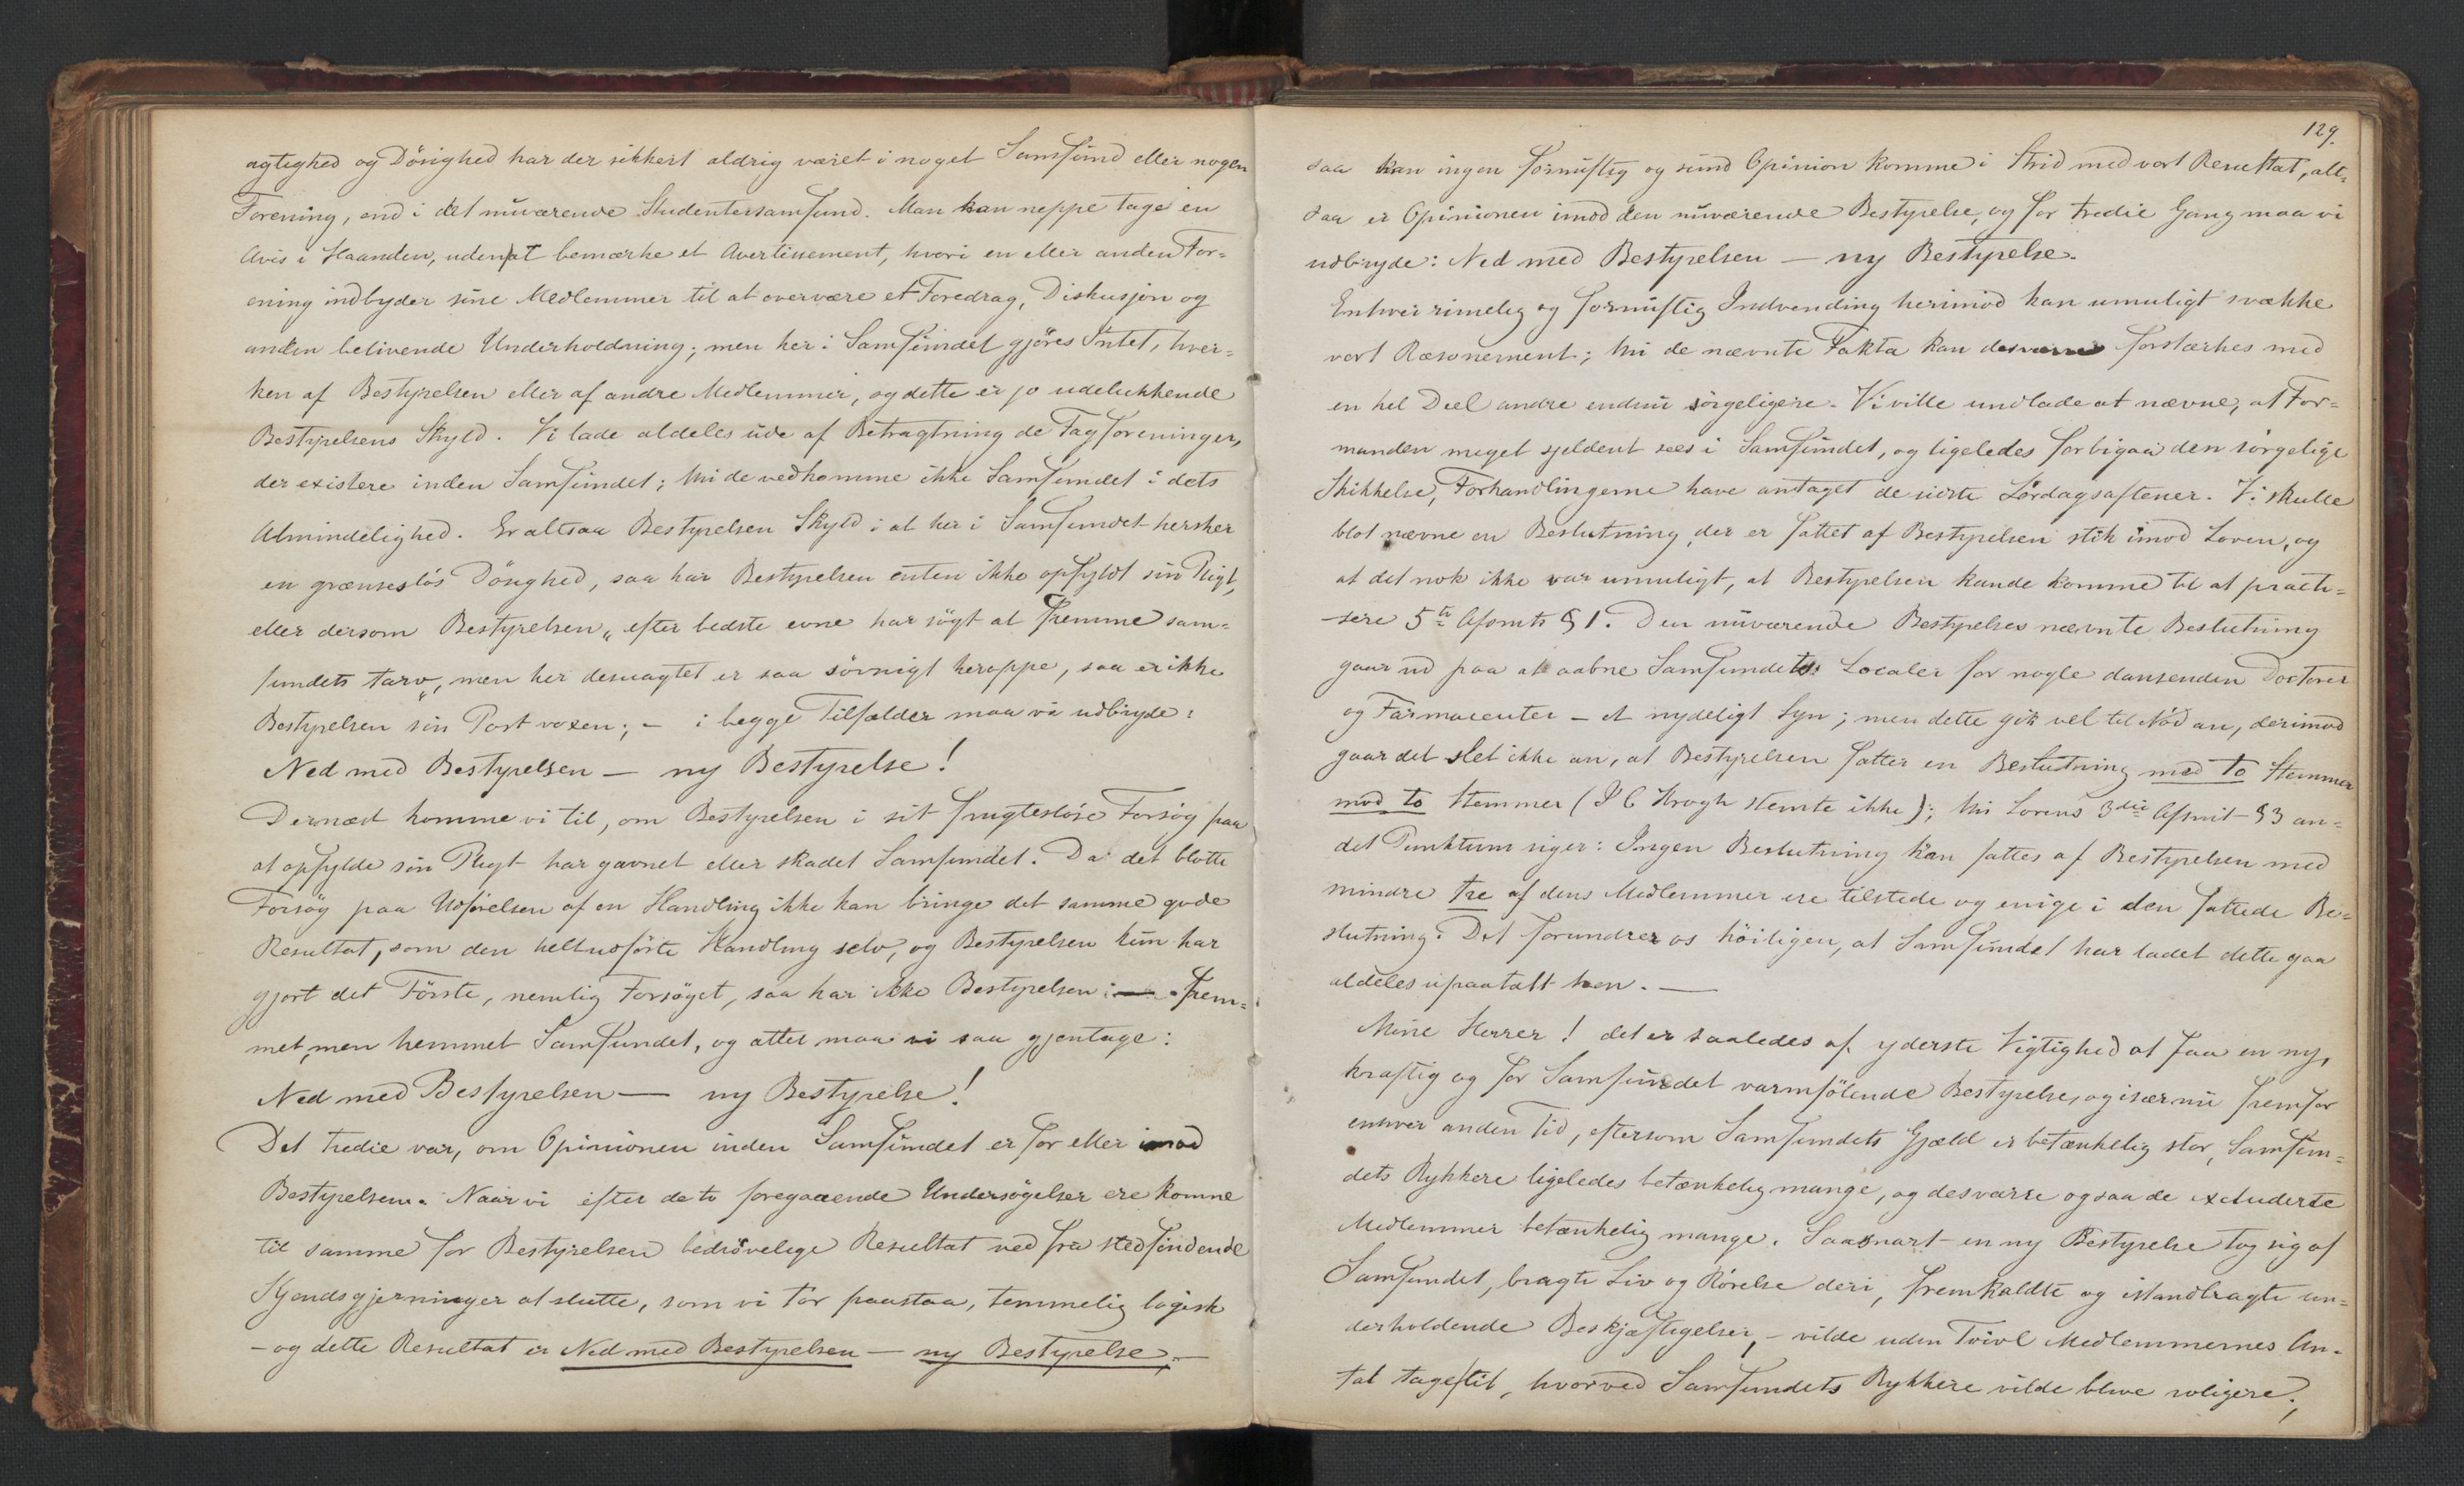 agtighed og Dösighed har der sikkert aldrig været i noget Samfund eller nogen
Forening, end i det nuværende Studentersamfund. Man kan neppe tage en
Avis i Haanden, uden at bemærke et Avertissement, hvori en eller anden For-
ening indbyder sine Medlemmer til at overvære et Foredrag, Diskusjon og
anden belivende Underholdning; men her i Samfundet gjöres Intet, hver-
ken af Bestyrelsen eller af andre Medlemmer, og dette er jo udelukkende
Bestyrelsens Skyld. Vi lade aldeles ude af Betragtning de Fagforeninger,
der existere inden Samfundet; thi de vedkomme ikke Samfundet i dets
Almindelighed. Er altsaa Bestyrelsen Skyld i at her i Samfundet hersker
en grænseslös Dösighed, saa har Bestyrelsen enten ikke opfyldt sin Pligt,
eller dersom Bestyrelsen „efter bedste evne har sögt at fremme sam-
fundets tarv", men her desuagtet er saa sövnigt heroppe, saa er ikke
Bestyrelsen sin Post voxen; – i begge Tilfælder maa vi udbryde:
Ned med Bestyrelsen – ny Bestyrelse!
Dernæst komme vi til, om Bestyrelsen i sit frugteslöse Forsög paa
at opfylde sin Pligt har gavnet eller skadet Samfundet. Da det blotte
Forsög paa Udförelsen af en Handling ikke kan bringe det samme gode
Resultat, som den heltudförte Handling selv, og Bestyrelsen kun har
gjort det Förste, nemlig Forsöget, saa har ikke Bestyrelsen frem-
met, men hemmet Samfundet, og atter maa vi saa gjentage:
Ned med Bestyrelsen – ny Bestyrelse!
Det tredie var, om Opinionen inden Samfundet er for eller imod
Bestyrelsen. Naar vi efter de to foregaaende Undersögelser ere komne
til samme for Bestyrelsen bedrövelige Resultat ved fra stedfindende
Kjendsgjerninger at slutte, som vi tör paastaa, temmelig logisk
– og dette Resultat er Ned med Bestyrelsen – ny Bestyrelse, –
129.
saa kan ingen fornuftig og sund Opinion komme i Strid med vort Resultat, alt-
saa er Opinionen imod den nuværende Bestyrelse, og for tredie Gang maa vi
udbryde: Ned med Bestyrelsen – ny Bestyrelse.
Enhver rimelig og fornuftig Indvending herimod kan umuligt svække
vort Ræsonement; thi de nævnte Fakta kan desværre forstærkes med
en hel Deel andre endnu sörgeligere. Vi ville undlade at nævne, at For-
manden meget sjeldent sees i Samfundet, og ligeledes forbigaa den sörgelige
Skikkelse, Forhandlingerne have antaget de sidste Lördagsaftener. Vi skulle
blot nævne en Beslutning, der er fattet af Bestyrelsen stik imod Loven, og
at det nok ikke var umuligt, at Bestyrelsen kunde komme til at practi-
sere 5te Afsnits § 1. Den nuværende Bestyrelses nævnte Beslutning
gaar ud paa at aabne Samfundets Localer for nogle dansenden Doctorer
og Farmaceuter – et nydeligt Syn; men dette gik vel til Nöd an, derimod
gaar det slet ikke an, at Bestyrelsen fatter en Beslutning med to Stemmer
mod to Stemmer (I C Krogh stemte ikke); thi Lovens 3die Afsnit § 3 an-
det Punktum siger: Ingen Beslutning kan fattes af Bestyrelsen med
mindre tre af dens Medlemmer ere tilstede og enige i den fattede Be-
slutning. Det forundrer os höiligen, at Samfundet har ladet dette gaa
aldeles upaatalt hen. –
Mine Herrer! det er saaledes af yderste Vigtighed at faa en ny,
kraftig og for Samfundet varmfölende Bestyrelse, og især nu fremfor
enhver anden Tid, eftersom Samfundets Gjæld er betænkelig stor, Samfun-
dets Rykkere ligeledes betænkelig mange, og desværre ogsaa de excluderte
Medlemmer betænkelig mange. Saasnart en ny Bestyrelse tog sig af
Samfundet, bragte Liv og Rörelse deri, fremkaldte og istandbragte un-
derholdende Beskjæftigelser, – vilde uden Tvivl Medlemmernes An-
tal tage til, hvorved Samfundets Rykkere vilde blive roligere;